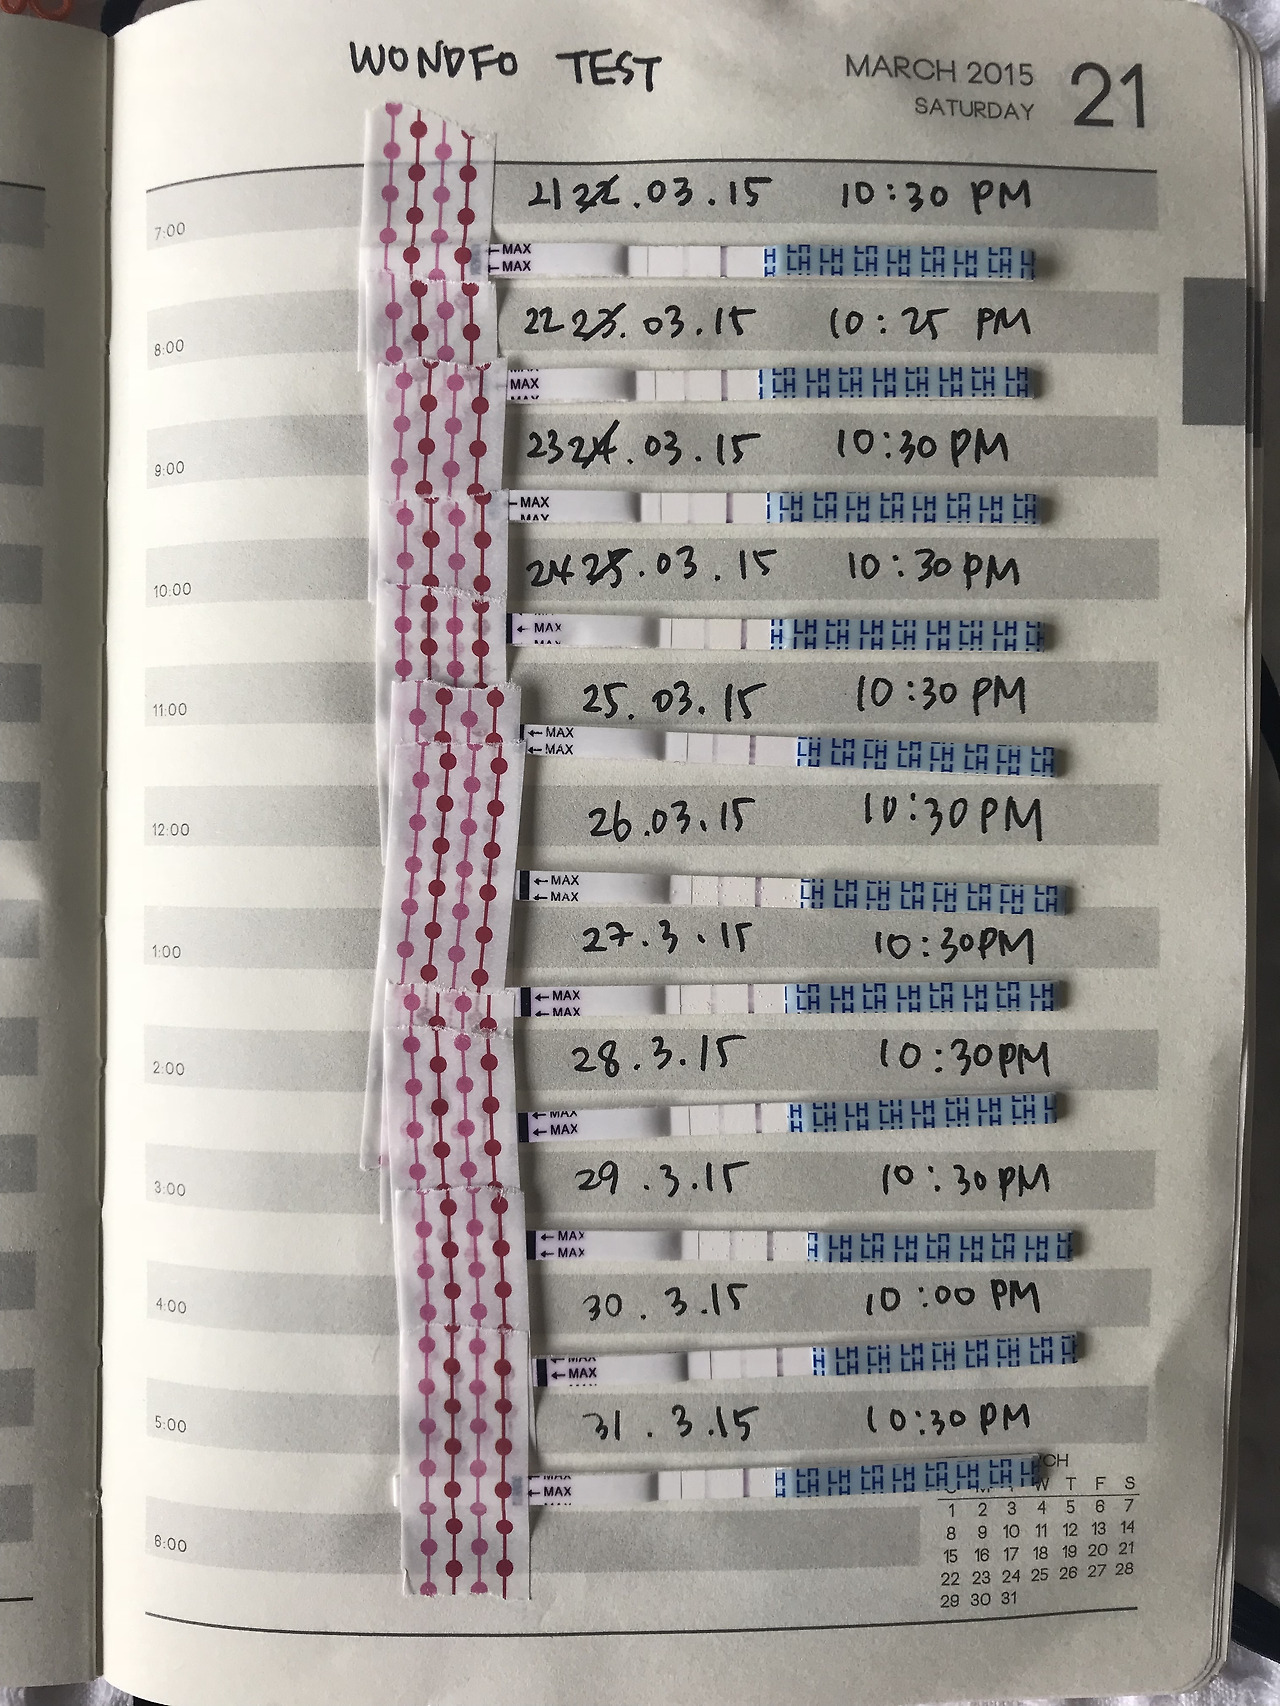 WONDFO TEST
MARCH 2015 21
SATURDAY
21 22.03.15 10:30 PM
7:00
MAX
MAX H LH LH LH LH LH LH LH LH
22 23.03.15 10:25 PM
8:00
MAX
MAX LH LH LH LH LH LH LH LH
MAX
23 24.03.15 10:30 PM
9:00
MAX LH LH LH LH LH LH LH LH
MAX
24 25.03.15 10:30 PM
10:00
MAX
MAX H LH LH LH LH LH LH LH LH
MAX
25.03.15 10:30 PM
11:00
MAX
MAX LH LH LH LH LH LH LH LH
26.03.15 10:30 PM
12:00
MAX
MAX LH LH LH LH LH LH LH LH
27.3.15 10:30PM
1:00
MAX
MAX LH LH LH LH LH LH LH LH
28.3.15 10:30PM
2:00
MAX
MAX H LH LH LH LH LH LH LH
29.3.15 10:30PM
3:00
MAX
MAX H LH LH LH LH LH LH LH
30.3.15 10:00 PM
4:00
MAX
MAX H LH LH LH LH LH LH LH
MAX
31.3.15 10:30PM
5:00
MAX
MAX H LH LH LH LH LH LH LH
MAX
CH
W T F S
1 2 3 4 5 6 7
8 9 10 11 12 13 14
15 16 17 18 19 20 21
22 23 24 25 26 27 28
29 30 31
6:00